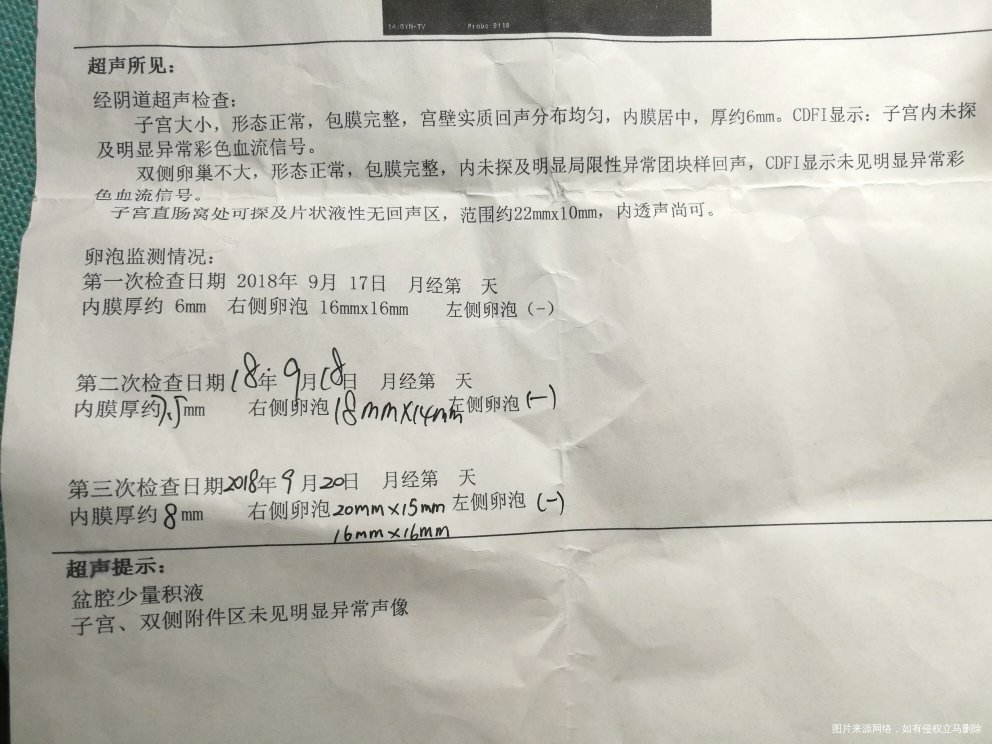 14:GYN-TV Probe 9118
超声所见：
经阴道超声检查：
子宫大小，形态正常，包膜完整，宫壁实质回声分布均匀，内膜居中，厚约6mm。CDFI显示：子宫内未探
及明显异常彩色血流信号。
双侧卵巢不大，形态正常，包膜完整，内未探及明显局限性异常团块样回声，CDFI显示未见明显异常彩
色血流信号。
子宫直肠窝处可探及片状液性无回声区，范围约22mmx10mm，内透声尚可。
卵泡监测情况：
第一次检查日期 2018年 9月 17日 月经第 天
内膜厚约 6mm 右侧卵泡 16mmx16mm 左侧卵泡（-）
第二次检查日期18年 9月18日 月经第 天
内膜厚约7.5mm 右侧卵泡18mm×14mm左侧卵泡(-)
第三次检查日期2018年 9月20日 月经第 天
内膜厚约8mm 右侧卵泡20mm×15mm 左侧卵泡 (-)
16mm×16mm
超声提示：
盆腔少量积液
子宫、双侧附件区未见明显异常声像
图片来源网络，如有侵权立马删除